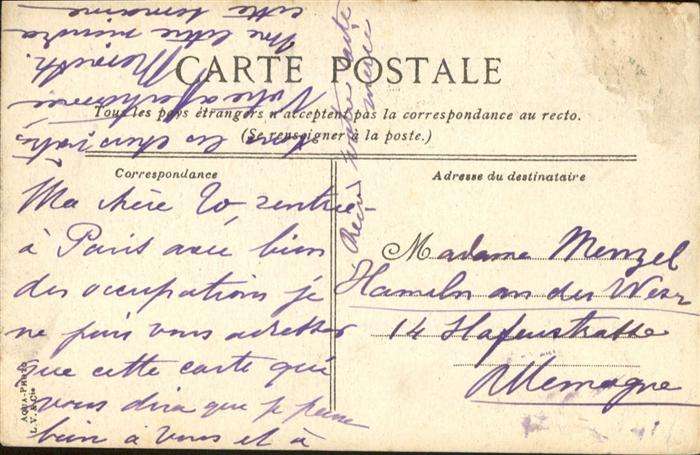 CARTE POSTALE
Tous les pays étrangers n'acceptent pas la correspondance au recto.
(Se renseigner à la poste.)
Correspondance
Ma chère Zo, rentrée
à Paris avec bien
des occupations je
ne puis vous adresser
que cette carte qui
vous dira que je pense
bien à vous et à
tous les chers
Votre affectionnée
Une lettre viendra
cette semaine
Reçu votre carte
merci
Adresse du destinataire
Madame Menzel
Hameln an der Weser
14 Hafenstrasse
Allemagne
AQUA-PHOTO
L. V. & Cie